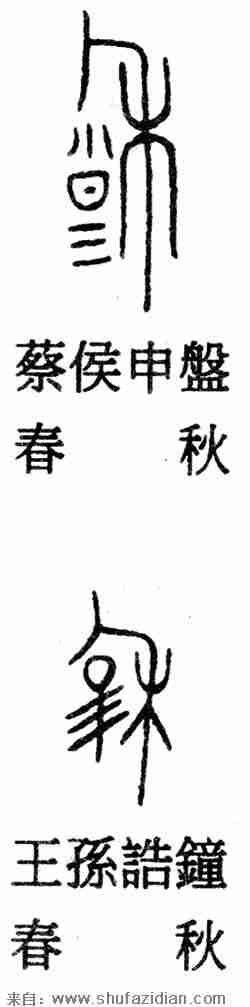 穆
蔡侯申盤
春秋
穆
王孫誥鐘
春秋
来自：www.shufazidian.com